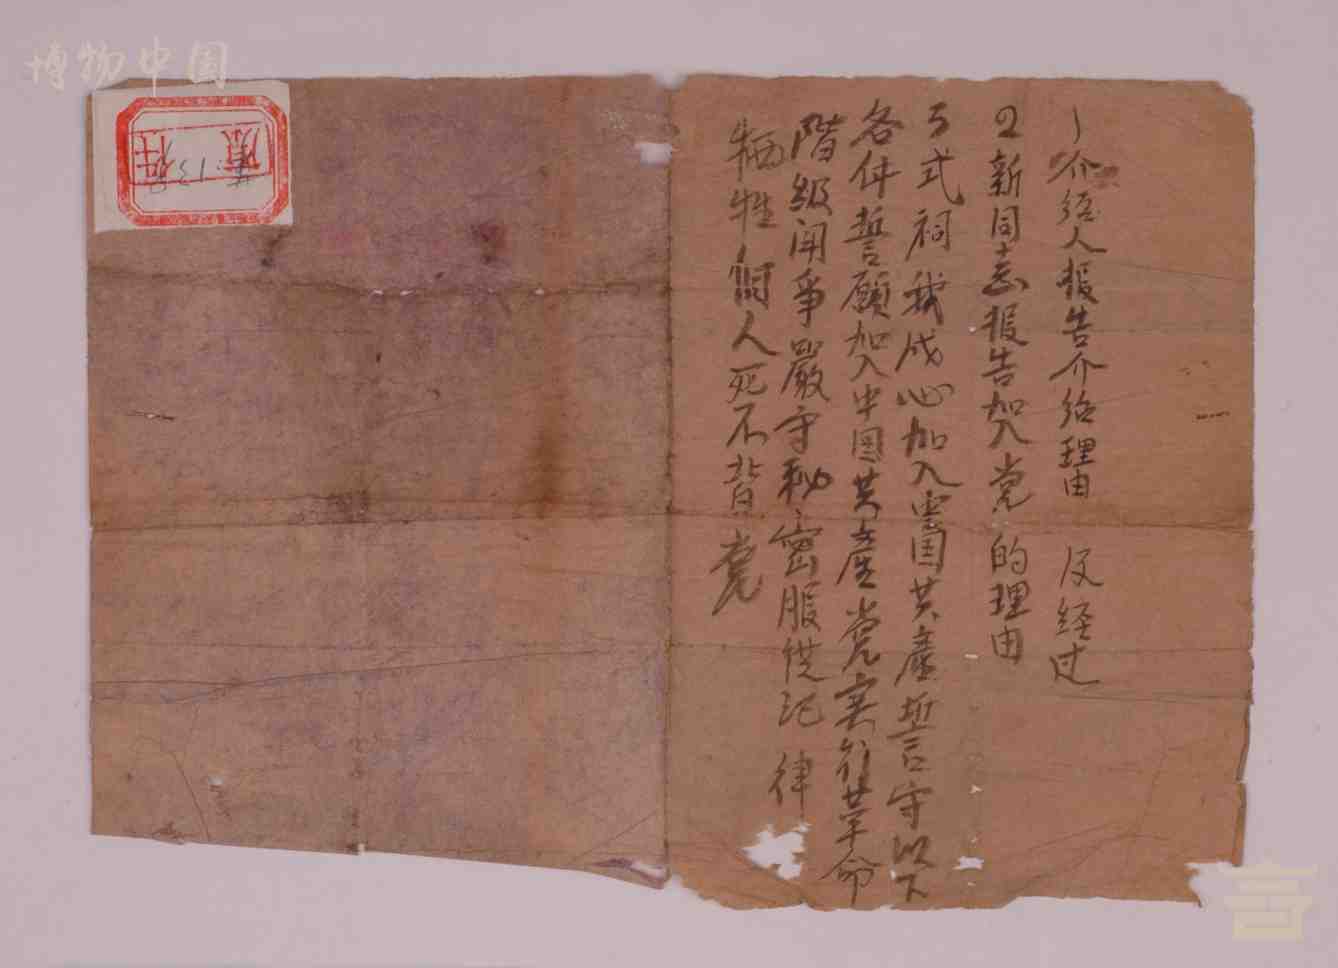 博物中国
1 介绍人报告介绍理由 及经过
2 新同志报告加入党的理由
3 式祠我成心加入中国共產誓言守以下
各件誓願加入中国共産党実行革命
階級闘爭嚴守秘密服従纪律
牺牲個人死不背党
原
件